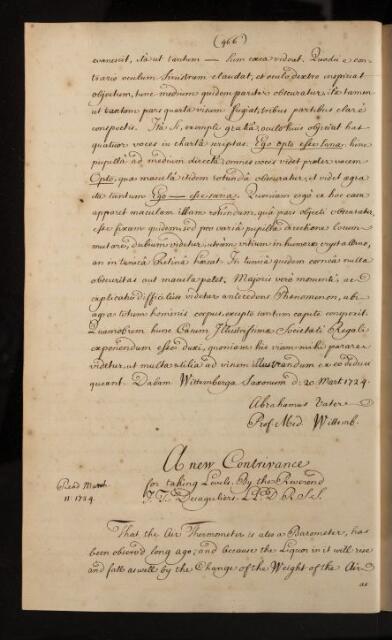 (466)
evanescit, ita ut tantum — hum cæca videat. Quod si e con-
trario oculum sinistram claudat, et oculo dextro inspiciat
objectum, tunc medium quidem pariter obscuratur, ita tamen
ut tantum pars quarta visum fugiat, tribus partibus clare
conspectis. Ita si, exempli gratiâ, oculo huic objiciat has
quatuor voces in chartâ scriptas. Ego opto esse sana: hinc
pupillâ ad medium directâ omnes voces videt præter vocem
Opto, quæ maculâ itidem rotundâ obscuratur, et videt ægra
tantum Ego — esse sana. Quoniam ergo ex hoc casu
apparet maculam illam rotundam, quâ pars objecti obscuratur,
esse fixam quidem, sed pro variâ pupillæ directione locum
mutare, dubium videtur, utrum vitium in humore crystallino,
an in tunicâ Retinâ hæreat. In tunicâ quidem corneâ nulla
obscuritas aut macula patet. Majoris verò momenti, ac
explicatu difficilius videtur antecedens Phænomenon, ubi
ægrotus hominis corpus excepto tantum capite conspexit.
Quamobrem hunc Casum Illustrissimæ Societati Regali
exponendum esse duxi, quoniam hic viam mihi parare
videtur, ut multa utilia ad visum illustrandum ex eo deduci
queant. Dabam Wittemberga Saxonum d. 20 Mart. 1724.
Abrahamus Vater
Prof. Med. Wittemb.
A new Contrivance
for taking Levels. By the Reverend
J. T. Desaguliers. LL.D. R.S.S.
Read March
1724.
That the Air Thermometer is also a Barometer, has
been observ'd long ago; and because the Liquor in it will rise
and fall as well by the Change of the Weight of the Air
as